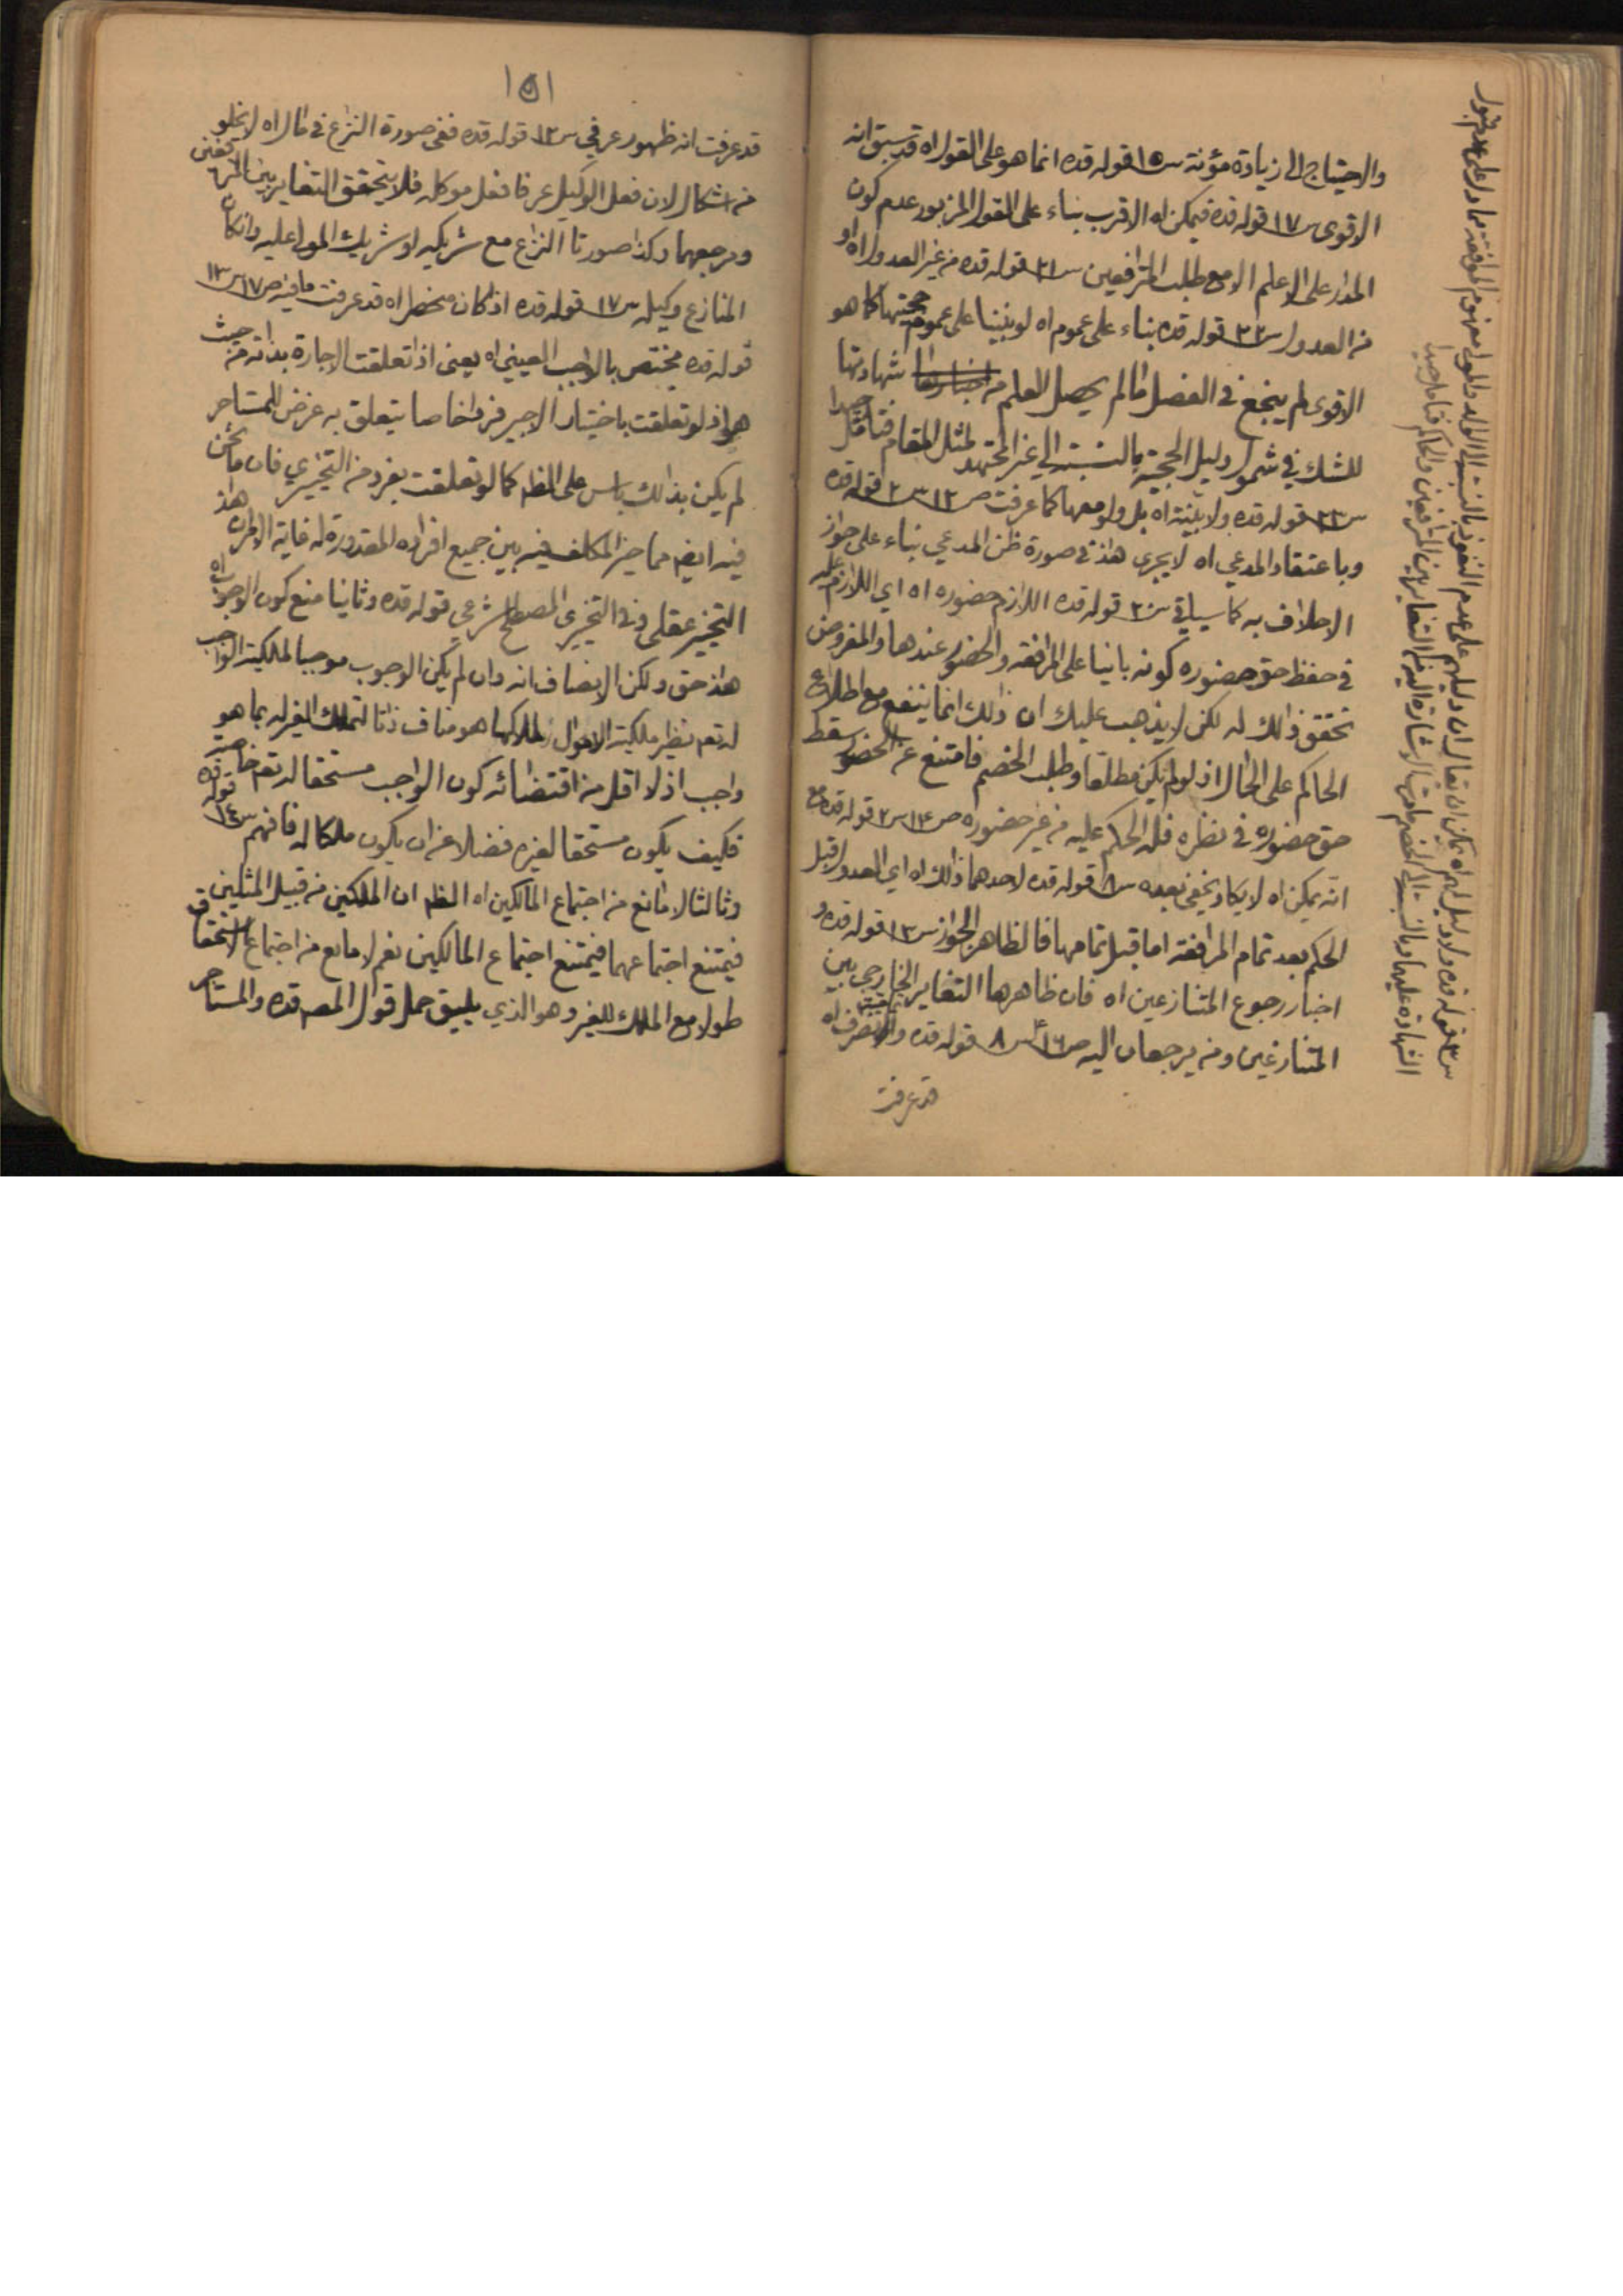 والاحتياج الى زيادة مؤنة س١٥ قوله قده انما هو على القول اه قد سبق انه
الاقوى س١٧ قوله قده فيمكن اه الاقرب بناء على القول المزبور عدم كون
المدار على الاعلم الا مع طلب المترافعين س٢١ قوله قده من غير العدول اه او
من العدول س٢٢ قوله قده بناء على عموم اه لو بنينا على عموم حجيتها كما هو
الاقوى لم ينجع في الفصل ما لم يحصل العلم من شهادتها
للشك في شمول دليل الحجية بالنسبة الى غير المجتهد لمثل المقام فتامل جدا
س٢٣ قوله قده ولا بينة اه بل ولو معها كما عرفت ص١٢ س٢ قوله قده
وباعتقاد المدعي اه لا يجرى هذا في صورة ظن المدعي بناء على جواز
الاحلاف به كما سياتي س٢٠ قوله قده اللازم حضوره اه اي اللازم عليه
في حفظ حق حضوره كونه بانيا على المرافعة والحضور عندها والمفروض
تحقق ذالك له لكن لا يذهب عليك ان ذلك انما ينفع مع اطلاع
الحاكم على الحال اذ لو لم يكن مطلعا وطلب الخصم فامتنع عن الحضور سقط
حق حضوره في نظره فله الحكم عليه من غير حضوره ص١٤ س٢ قوله قده مع
انه يمكن اه لا يكاد يخفى بعده س٨ قوله قده لاحدهما ذالك اه اي العدول قبل
الحكم بعد تمام المرافعة اما قبل تمامها فالظاهر الجواز س١٣ قوله قده و
اخبار رجوع المتنازعين اه فان ظاهرها التغاير الخارجي بين
المتنازعين ومن يرجعان اليه ص١٦ س٨ قوله قده والمنصرف اه
قد عرفت
س٣ قوله قده ولا دليل لهم اه يمكن ان يقال ان دليلهم على عدم النفوذ بالنسبة الى الولد والمولى مفهوم الموافقة مما دل على عدم قبول
الشهادة عليهما وبالنسبة الى الخصم ما مرت الاشارة اليه من التغاير بين المترافعين والحاكم فتامل جيدا
١٥١
قد عرفت انه ظهور عرفي س١٢ قوله قده ففي صورة النزاع في مال اه لا يخلو
من اشكال لان فعل الوكيل عرفا فعل موكله فلا يتحقق التغاير بين المترافعين
ومرجعهما وكذا صورتا النزاع مع شريكه او شريك المولى عليه وان كان
المنازع وكيله س١٧ قوله قده اذ كان منحصرا اه قد عرفت ما فيه ص١٧ س١٣
قوله قده مختص بالواجب العيني اه يعنى اذا تعلقت الاجارة بذاته من حيث
هو اذ لو تعلقت باختيار الاجير فردا خاصا يتعلق به غرض للمستاجر
لم يكن بذلك باس على الظم كما لو تعلقت بفرد من التخييري فان ما نحن
فيه ايضم مما خير المكلف فيه بين جميع افراده المقدورة له غاية الامر ان هذا
التخيير عقلى وفى التخييرى المصطلح شرعي قوله قده وثانيا منع كون الوجوب اه
هذا حق ولكن الانصاف انه وان لم يكن الوجوب موجبا لمالكية الواجب
له تعم نظير ملكية الاموال لملاكها هو مناف ذاتا لتملك الغير له بما هو
واجب اذ لا اقل من اقتضائه كون الواجب مستحقا له تعم خاصة
فكيف يكون مستحقا لغيره فضلا عن ان يكون ملكا له فافهم س١٤ قوله قده
وثالثا لا مانع من اجتماع المالكين اه الظم ان الملكين من قبيل المثلين
فيمتنع اجتماعهما فيمتنع اجتماع المالكين نعم لا مانع من اجتماع الاستحقاق
طولا مع الملك للغير وهو الذي يليق حمل قول المصم قده والمستاجر